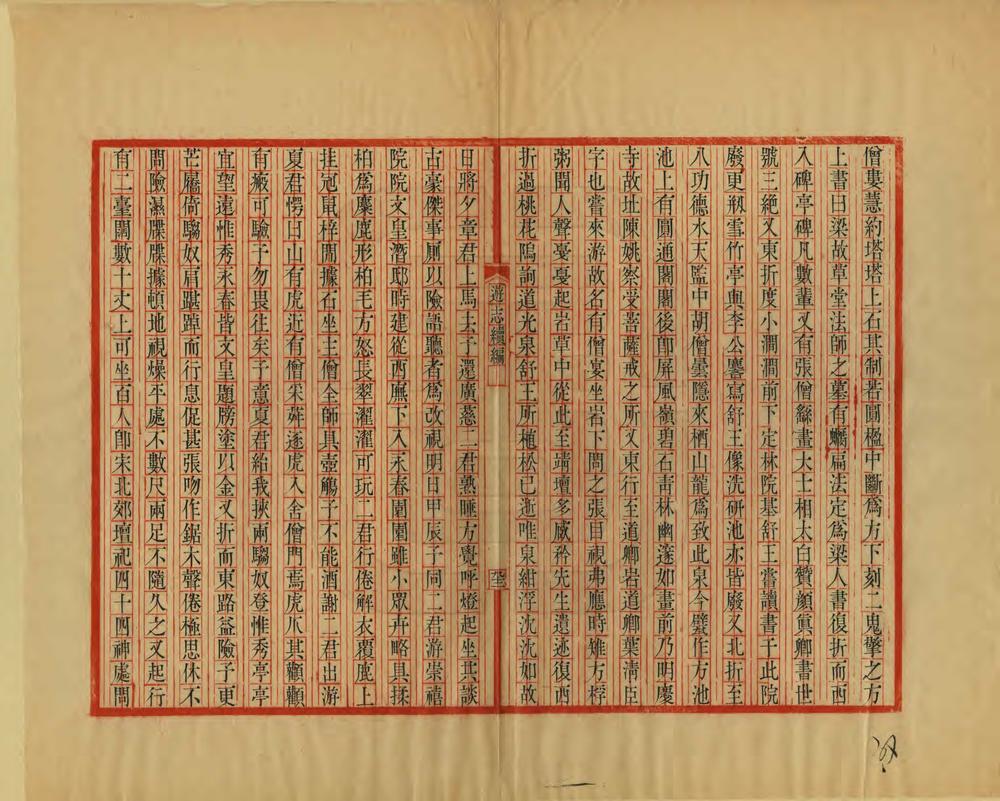 僧婁慧約塔塔上石其制若圓楹中斷爲方下刻二鬼擎之方
上書曰梁故草堂法師之墓有蠣扁法定爲梁人書復折而西
入碑亭碑凡數輩又有張僧繇畫大士相太白贊顏眞卿書世
號三絕又東折度小澗澗前下定林院基舒王嘗讀書于此院
廢更剏雪竹亭與李公麐寫舒王像洗硏池亦皆廢又北折至
八功德水天監中胡僧曇隱來栖山龍爲致此泉今甃作方池
池上有圓通閣閣後卽屏風嶺碧石靑林幽邃如畫前乃明慶
寺故址陳姚察受菩薩戒之所又東行至道卿岩道卿葉淸臣
字也嘗來游故名有僧宴坐岩下問之張目視弗應時雉方桴
粥聞人聲戛戛起岩草中從此至靖壇多臧矜先生遺迹復西
折過桃花隖詢道光泉舒王所植松已逝唯泉紺浮沈沈如故
遊志續編
日將夕章君上馬去予還廣慈二君熟睡方覺呼燈起坐共談
古豪傑事廁以險語聽者爲改視明日甲辰予同二君游崇禧
院院文皇潛邸時建從西廡下入永春園園雖小眾卉略具揉
柏爲麋鹿形柏毛方怒長翠濯濯可玩二君行倦解衣覆鹿上
挂冠鼠梓閒據石坐主僧全師具壺觴予不能酒謝二君出游
夏君愕曰山有虎近有僧采蕣逐虎入舍僧門焉虎爪其顴顴
有瘢可驗子勿畏往矣予意夏君紿我挾兩騶奴登惟秀亭亭
宜望遠惟秀永春皆文皇題牓塗以金又折而東路益險予更
芒屩倚騶奴肩踸踔而行息促甚張吻作鋸木聲倦極思休不
問險濕牒牒據頓地視燥平處不數尺兩足不隨久之又起行
有二臺闊數十丈上可坐百人卽宋北郊壇祀四十四神處閒